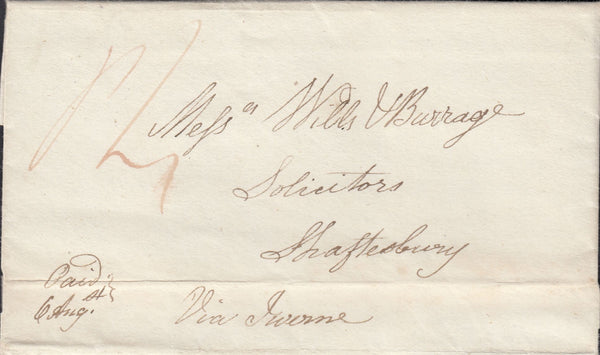 P4
Messrs Wills & Burrage
Solicitors
Shaftesbury
Paid
6 Augst
Via Iwerne